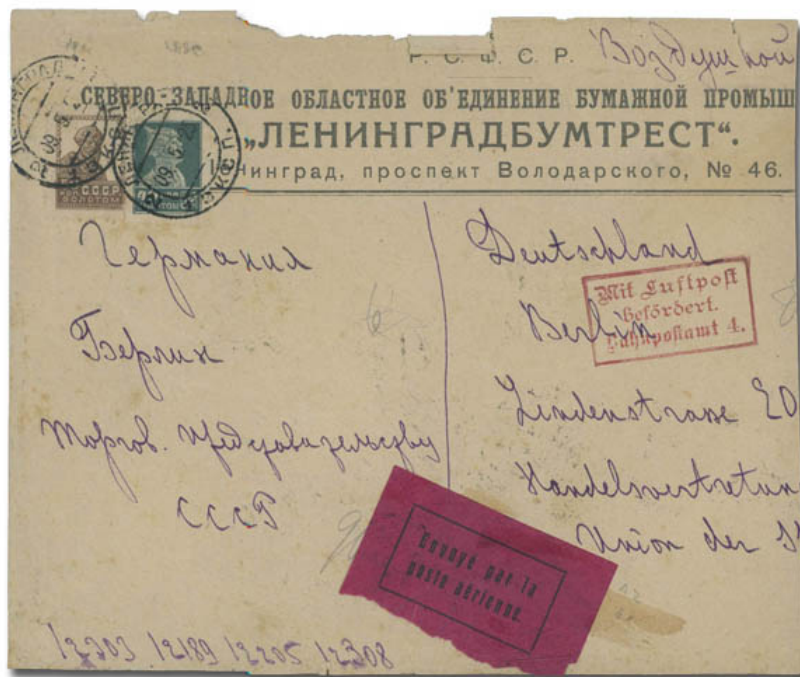 Р. С. Ф. С. Р.
Воздушной
СЕВЕРО-ЗАПАДНОЕ ОБЛАСТНОЕ ОБ'ЕДИНЕНИЕ БУМАЖНОЙ ПРОМЫШ
„ЛЕНИНГРАДБУМТРЕСТ“.
нинград, проспект Володарского, № 46.
С.С.С.Р.
ЗОЛОТОМ
Германия
Берлин
Торгов. представительству
СССР
Deutschland
Berlin
Lindenstrasse 20
Handelsvertretun
Union der
Mit Luftpost
befördert.
Bahnpostamt 4.
Envoyé par la
poste aérienne.
12203 12189 12205 12308